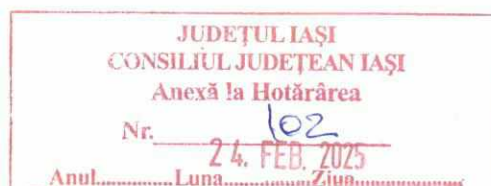 JUDEŢUL IAŞI
CONSILIUL JUDEŢEAN IAŞI
Anexă la Hotărârea
Nr. 102
24. FEB. 2025
Anul..............Luna..............Ziua..................